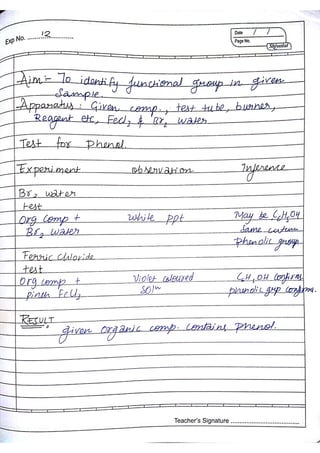 Exp No. 12
Date / /
Page No.
Aim:- To identify functional group in given
Sample.
Apparatus: Given comp., test tube, burner,
Reagent etc, Fecl3 & Br2 water
Test for Phenol.
Experiment observation Inference
Br2 water
test
Org comp + white ppt May be C6H5OH
Br2 water same
phenolic group
Ferric chloride
test
Org comp + Violet coloured C6H5OH confirms
pinch FeCl3 soln phenolic grp confirms.
RESULT
given organic comp. contains phenol.
Teacher's Signature